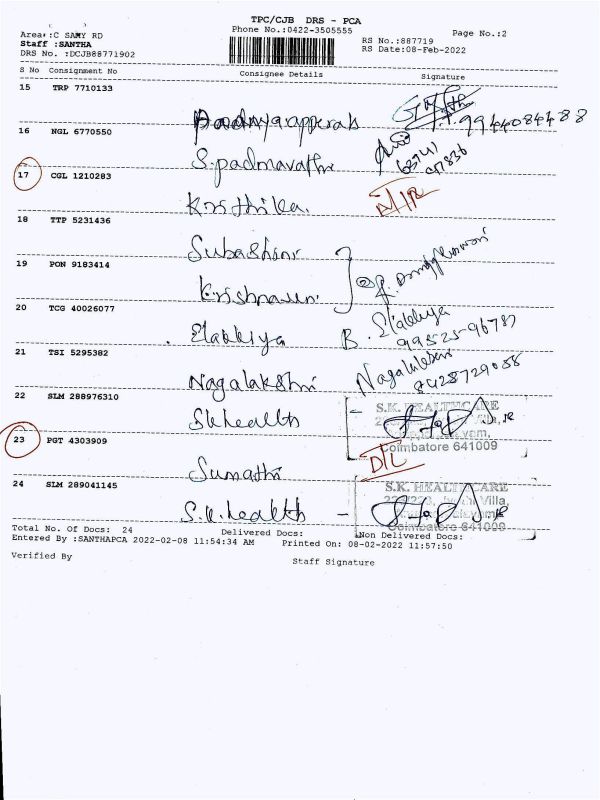 TPC/CJB DRS - PCA
Area :C SAMY RD
Phone No.:0422-3505555
Page No.:2
Staff :SANTHA
RS No.:887719
DRS No. :DCJB88771902
RS Date:08-Feb-2022
S No Consignment No Consignee Details Signature
15 TRP 7710133
9944084488
16 NGL 6770550
S. padmavathi
63741
47836
17 CGL 1210283
Krithika
18 TTP 5231436
Subashini
19 PON 9183414
20 TCG 40026077
Elakkiya B. Elakkiya
99525-96787
21 TSI 5295382
Nagalakshmi
8428729088
22 SLM 288976310
S.K. HEALTHCARE
Sk health
Coimbatore 641009
23 PGT 4303909
D/L
Sumathi
24 SLM 289041145
S.K. HEALTHCARE
S.K. health -
Coimbatore 641009
Total No. Of Docs: 24 Delivered Docs: Non Delivered Docs:
Entered By :SANTHAPCA 2022-02-08 11:54:34 AM Printed On: 08-02-2022 11:57:50
Verified By
Staff Signature